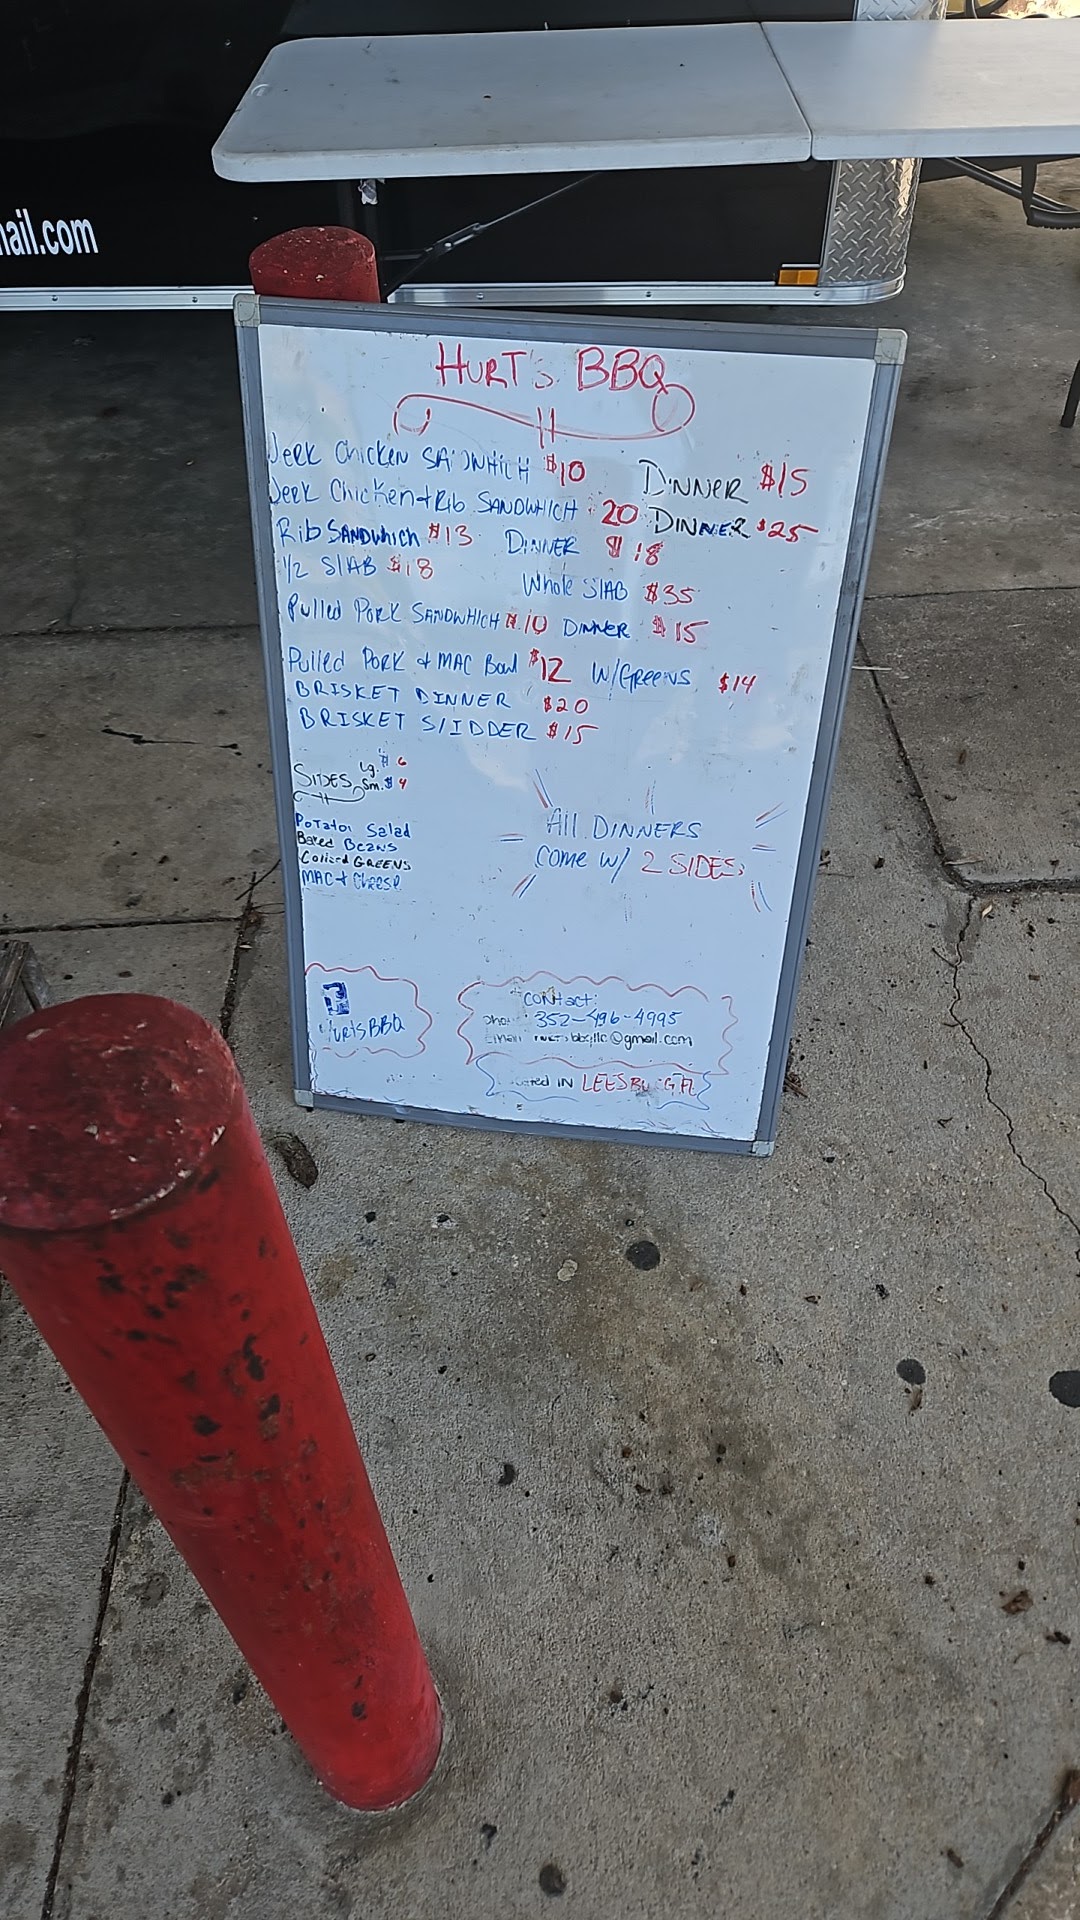 ail.com
HURT'S BBQ
Jerk Chicken SANDWHICH $10 DINNER $15
Jerk Chicken + Rib SANDWHICH 20 DINNER $25
Rib SANDWhich $13 DINNER $18
1/2 SlAB $18 Whole SlAB $35
Pulled Pork SANDWHICH $10 DINNER $15
Pulled Pork & MAC Bowl $12 W/GREENS $14
BRISKET DINNER $20
BRISKET SlIDDER $15
SIDES Lg. $6
Sm. $4
PoTatoe Salad
Baked Beans
Collard GREENS
MAC + Cheese
All DINNERS
COME W/ 2 SIDES
HurtsBBQ
CONtact:
352-496-4995
Email @gmail.com
IN LEESBURG FL